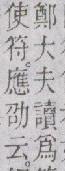 鄭大夫讀爲
使符應劭云